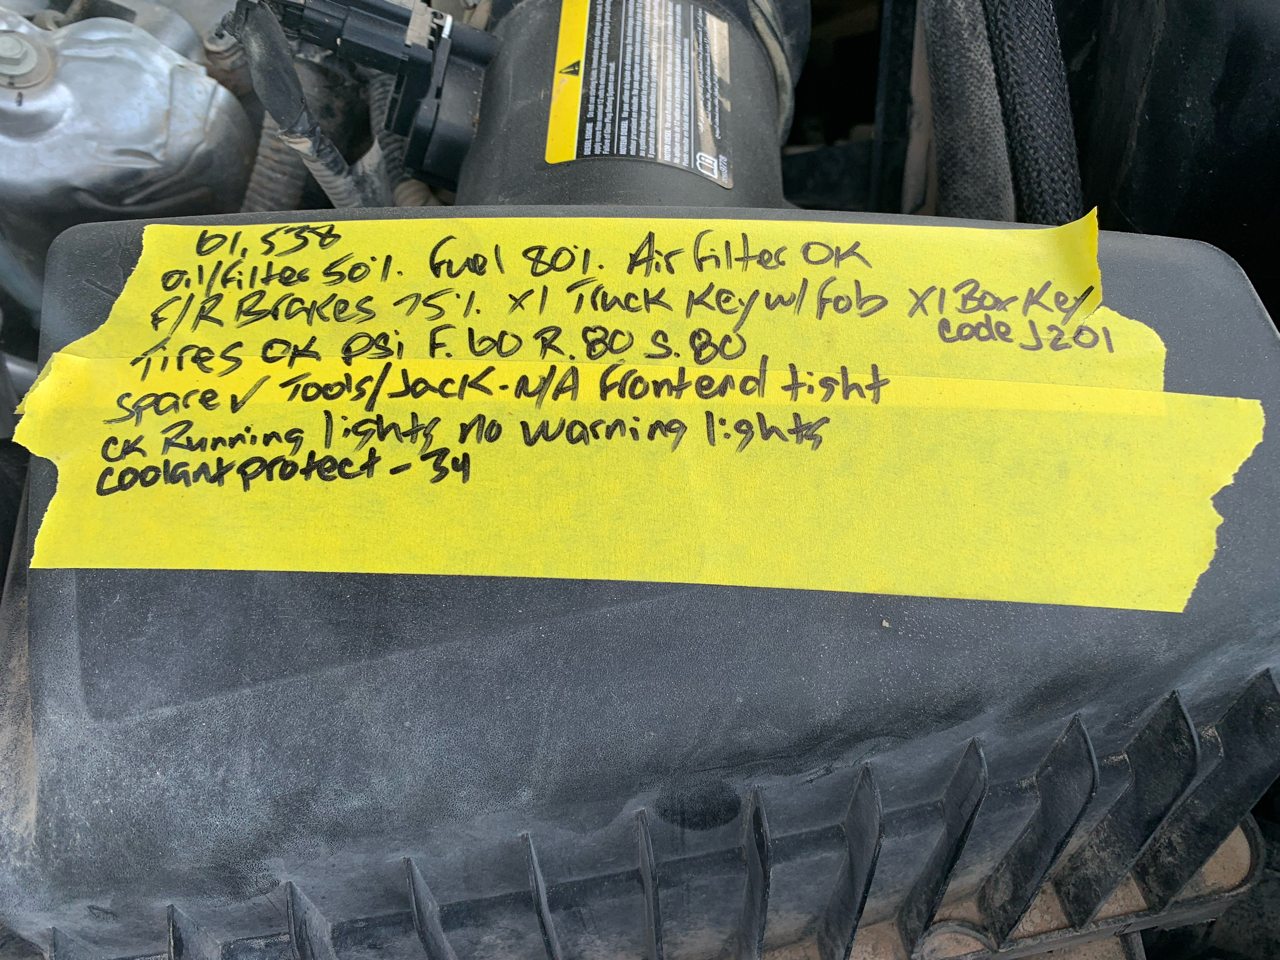 61,538
oil/filter 50%. Fuel 80%. Air filter OK
F/R Brakes 75% x1 Truck Key w/fob x1 Box Key
code J201
Tires OK psi F.60 R.80 S.80
spare ✓ Tools/Jack-N/A frontend tight
ck Running lights no warning lights
coolant protect -34